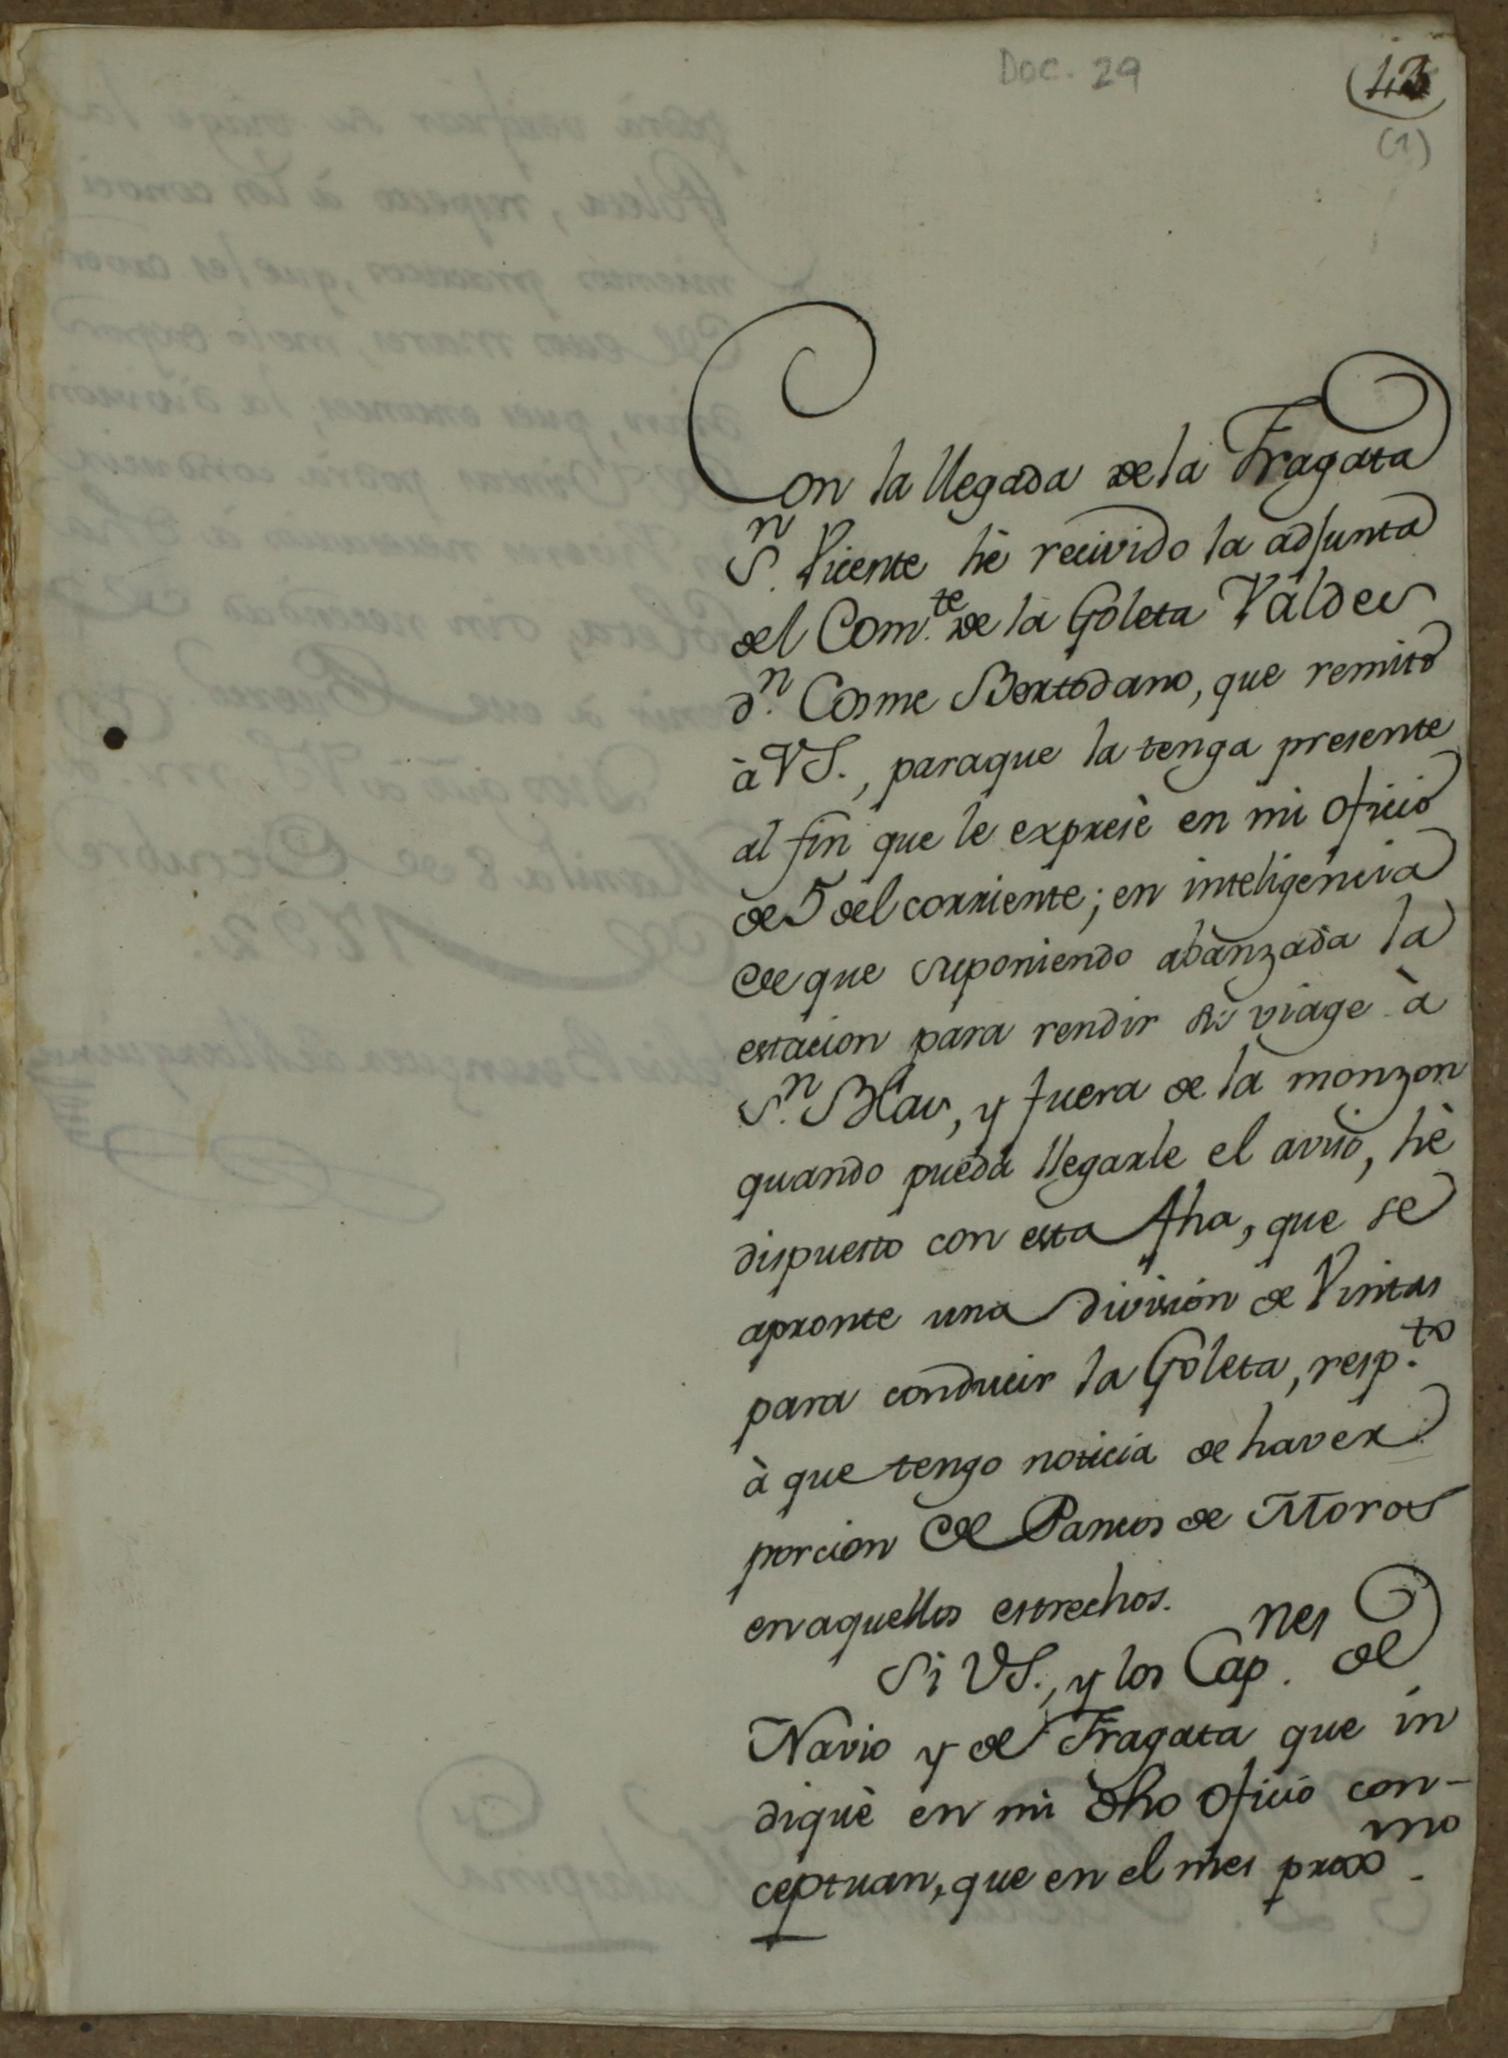 Doc. 29
43
(1)
Con la llegada de la Fragata
S.n Vicente hè recivido la adjunta
del Com.te de la Goleta Valdes
d.n Cosme Bertodano, que remito
à VS., paraque la tenga presente
al fin que le expresè en mi oficio
de 5 del corriente; en inteligencia
de que suponiendo abanzada la
estacion para rendir su viage à
S.n Blas, y fuera de la monzon
quando pueda llegarle el aviso, hè
dispuesto con esta fha, que se
apronte una división de Vintas
para conducir la Goleta, resp.to
à que tengo noticia de haver
porcion de Pancos de Moros
en aquellos estrechos.
Si VS., y los Cap.nes de
Navio y de Fragata que in
diquè en mi dho oficio con-
ceptuan, que en el mes prox.mo